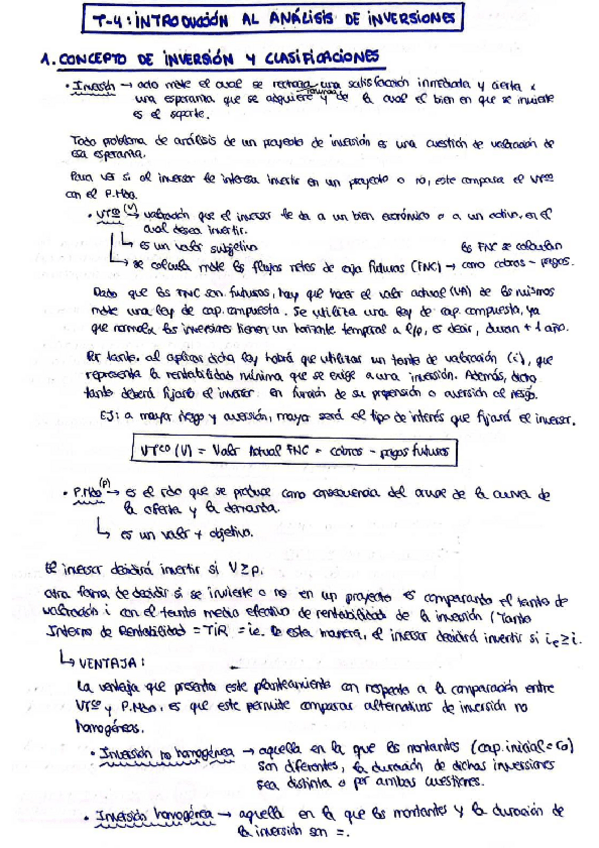 T-4: INTRODUCCIÓN AL ANÁLISIS DE INVERSIONES
1. CONCEPTO DE INVERSIÓN Y CLASIFICACIONES
· Inversión → acto mdte el cual se rechaza una satisfacción inmediata y cierta x
una esperanza que se adquiere y de la cual el bien en que se invierte
es el soporte.
Todo problema de análisis de un proyecto de inversión es una cuestión de valoración de
esa esperanza.
Para ver si al inversor le interesa invertir en un proyecto o no, este compara el VTco
con el P.Mdo.
· VTco (V) → valoración que el inversor le da a un bien económico o a un activo en el
cual desea invertir.
↳ es un valor subjetivo
↳ se calcula mdte los flujos netos de caja futuros (FNC) → los FNC se calculan como cobros - pagos.
Dado que los FNC son futuros, hay que hacer el valor actual (VA) de los mismos
mdte una ley de cap. compuesta. Se utiliza una ley de cap. compuesta, ya
que normalx las inversiones tienen un horizonte temporal a l/p, es decir, duran + 1 año.
Por tanto, al aplicar dicha ley habrá que utilizar un tanto de valoración (i), que
representa la rentabilidad mínima que se exige a una inversión. Además, dicho
tanto deberá fijarlo el inversor en función de su propensión o aversión al riesgo.
EJ: a mayor riesgo y aversión, mayor será el tipo de interés que fijará el inversor.
VTco (V) = Valor Actual FNC = cobros - pagos futuros
· P.Mdo (P) → es el rdo que se produce como consecuencia del cruce de la curva de
la oferta y la demanda.
↳ es un valor + objetivo.
El inversor decidirá invertir si V ≥ p.
Otra forma de decidir si se invierte o no en un proyecto es comparando el tanto de
valoración i con el tanto medio efectivo de rentabilidad de la inversión (Tanto
Interno de Rentabilidad = TiR = ie. De esta manera, el inversor decidirá invertir si ie ≥ i.
↳ VENTAJA:
La ventaja que presenta este planteamiento con respecto a la comparación entre
VTco y P.Mdo. es que este permite comparar alternativas de inversión no
homogéneas.
· Inversión no homogénea → aquella en la que los montantes (cap. inicial = C0)
son diferentes, la duración de dichas inversiones
sea distinta o por ambas cuestiones.
· Inversión homogénea → aquella en la que los montantes y la duración de
la inversión son =.